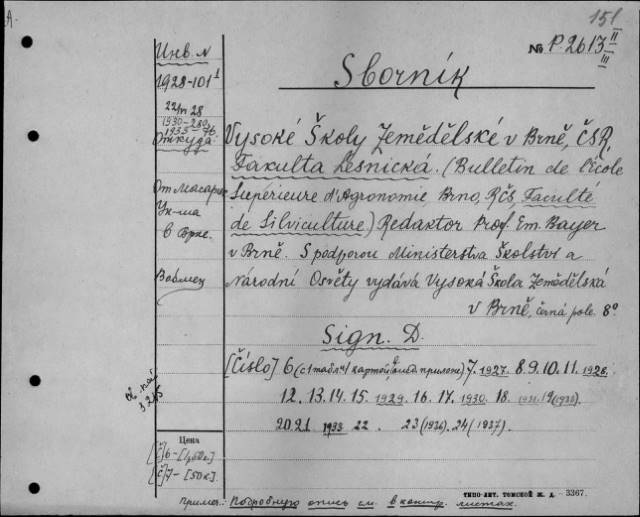 151
Инв. N
№ P.2613 II III
1928-101¹
Sborník
1930-280
1933-76
Откуда:
Vysoké Školy Zemědělské v Brně, ČSR,
Fakulta Lesnická. (Bulletin de l'école
От Масарик
Supérieure d'Agronomie Brno, RČS, Faculté
Ун-та
de Silviculture) Redaktor Prof. Em. Bayer
в Брне.
v Brně. S podporou Ministerstva Školství a
Národní Osvěty vydává Vysoká Škola Zemědělská
v Brně, černá pole 8°
Sign. D.
[Číslo] 6 (с 1 табл. 7. 1927. 8. 9. 10. 11. 1928.
12. 13. 14. 15. 1929. 16. 17. 1930. 18. 1931. 19 (1932).
20. 21. 1933 22. 23 (1936). 24 (1937).
Цена
[č] 6 -
[č] 7 - [50к]
ТИПО-ЛИТ. ТОМСКОЙ Ж. Д. – 3367.
Примеч: Подробную опись см. в контр. листах.